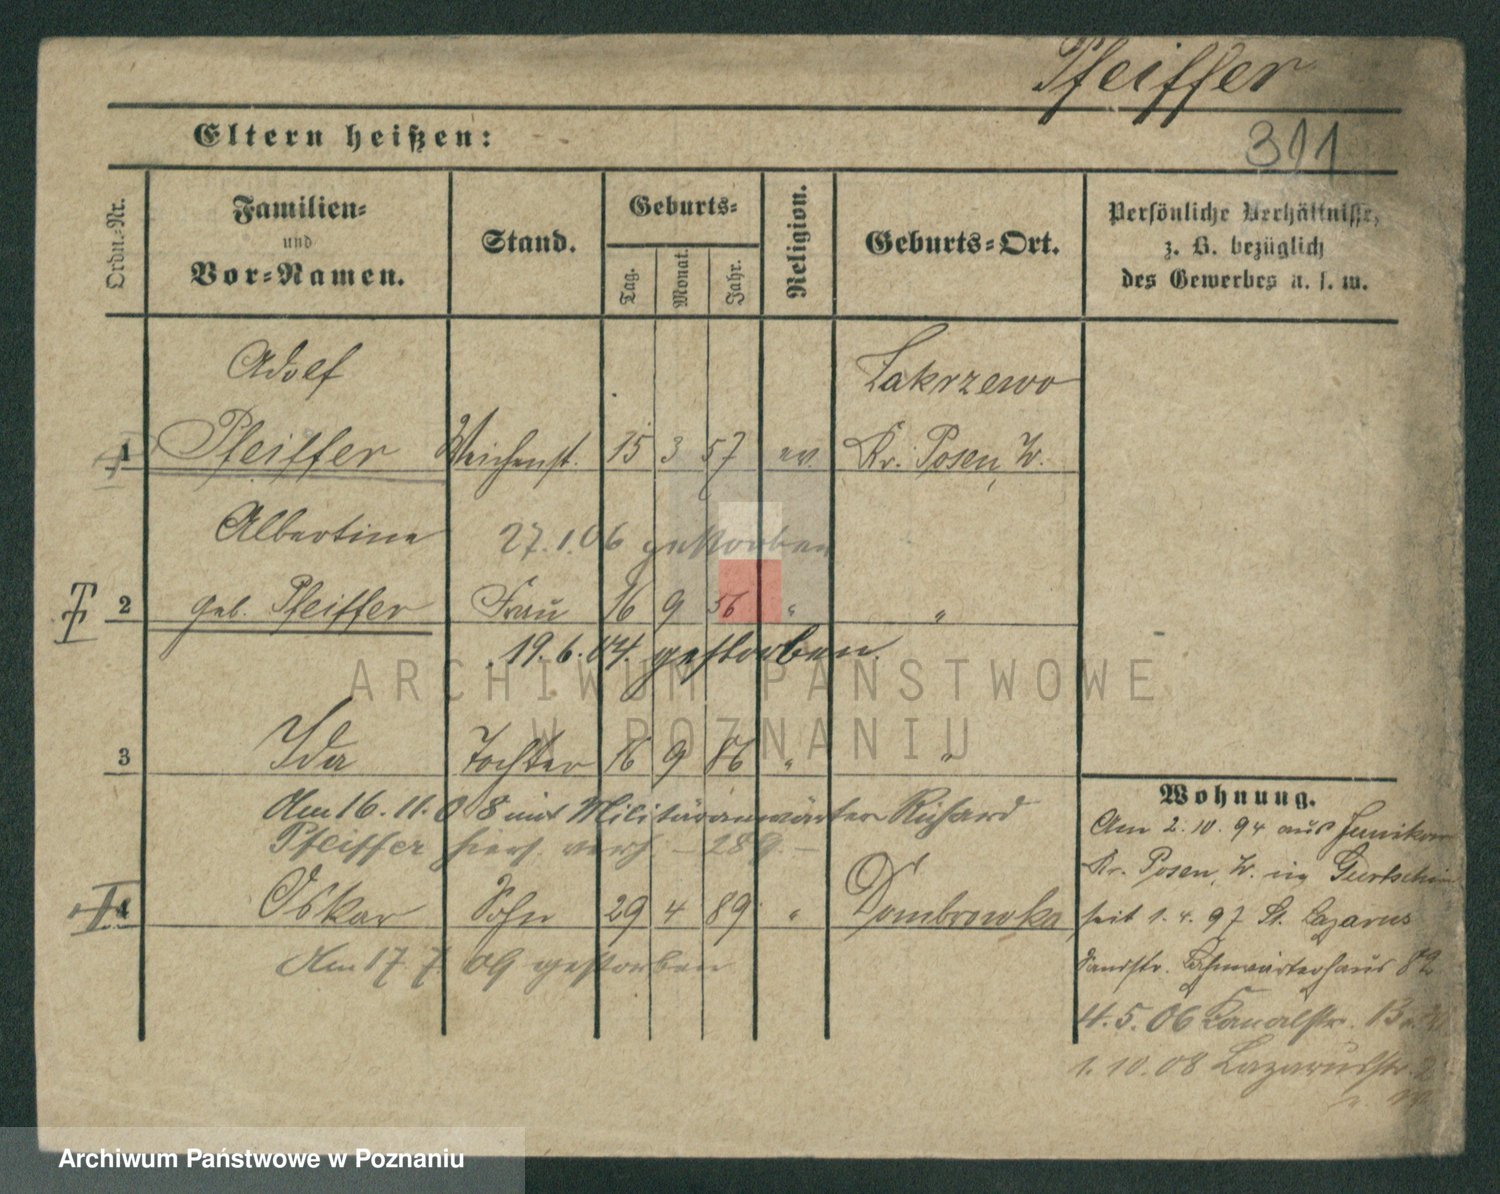 Pfeiffer
Eltern heißen:
311
Ordn.-Nr.
Familien-
und
Vor-Namen.
Stand.
Geburts-
Tag.
Monat.
Jahr.
Religion.
Geburts-Ort.
Persönliche Verhältnisse,
z. B. bezüglich
des Gewerbes u. s. w.
Adolf
Zakrzewo
1 Pfeiffer Weichenst. 15 3 57 ev. Kr. Posen, W.
Albertine 27.1.06 gestorben
2 geb. Pfeiffer Frau 16 9 56 " "
19.6.04. gestorben.
3 Ida Tochter 16 9 86 " "
Am 16.11.08 mit Militäranwärter Richard
Pfeiffer hier verh. – 289 –
4 Oskar Sohn 29 4 89 " Dombrowka
Am 17 7. 09 gestorben
Wohnung.
Am 2.10.94 aus Junikow
Kr. Posen, W. in Gurtschin
seit 1.4.97 St. Lazarus
Sandstr. Bahnwärterhaus 82
4.5.06 Kanalstr. 13
1.10.08 Lazarusstr. 2
ARCHIWUM PAŃSTWOWE
W POZNANIU
Archiwum Państwowe w Poznaniu